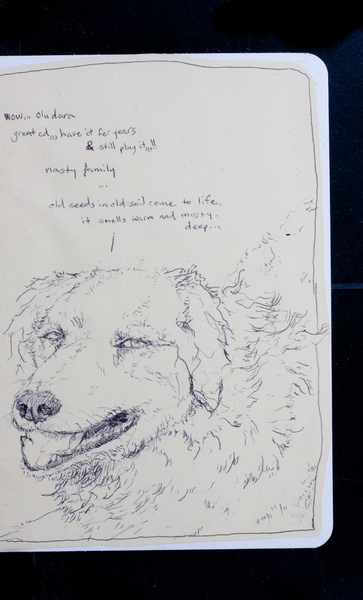 wow,,, Oludara
great cd,,, have it for years
& still play it,,,!!
nasty family
...
old seeds in old soil come to life.
it smells warm and musty.
deep...